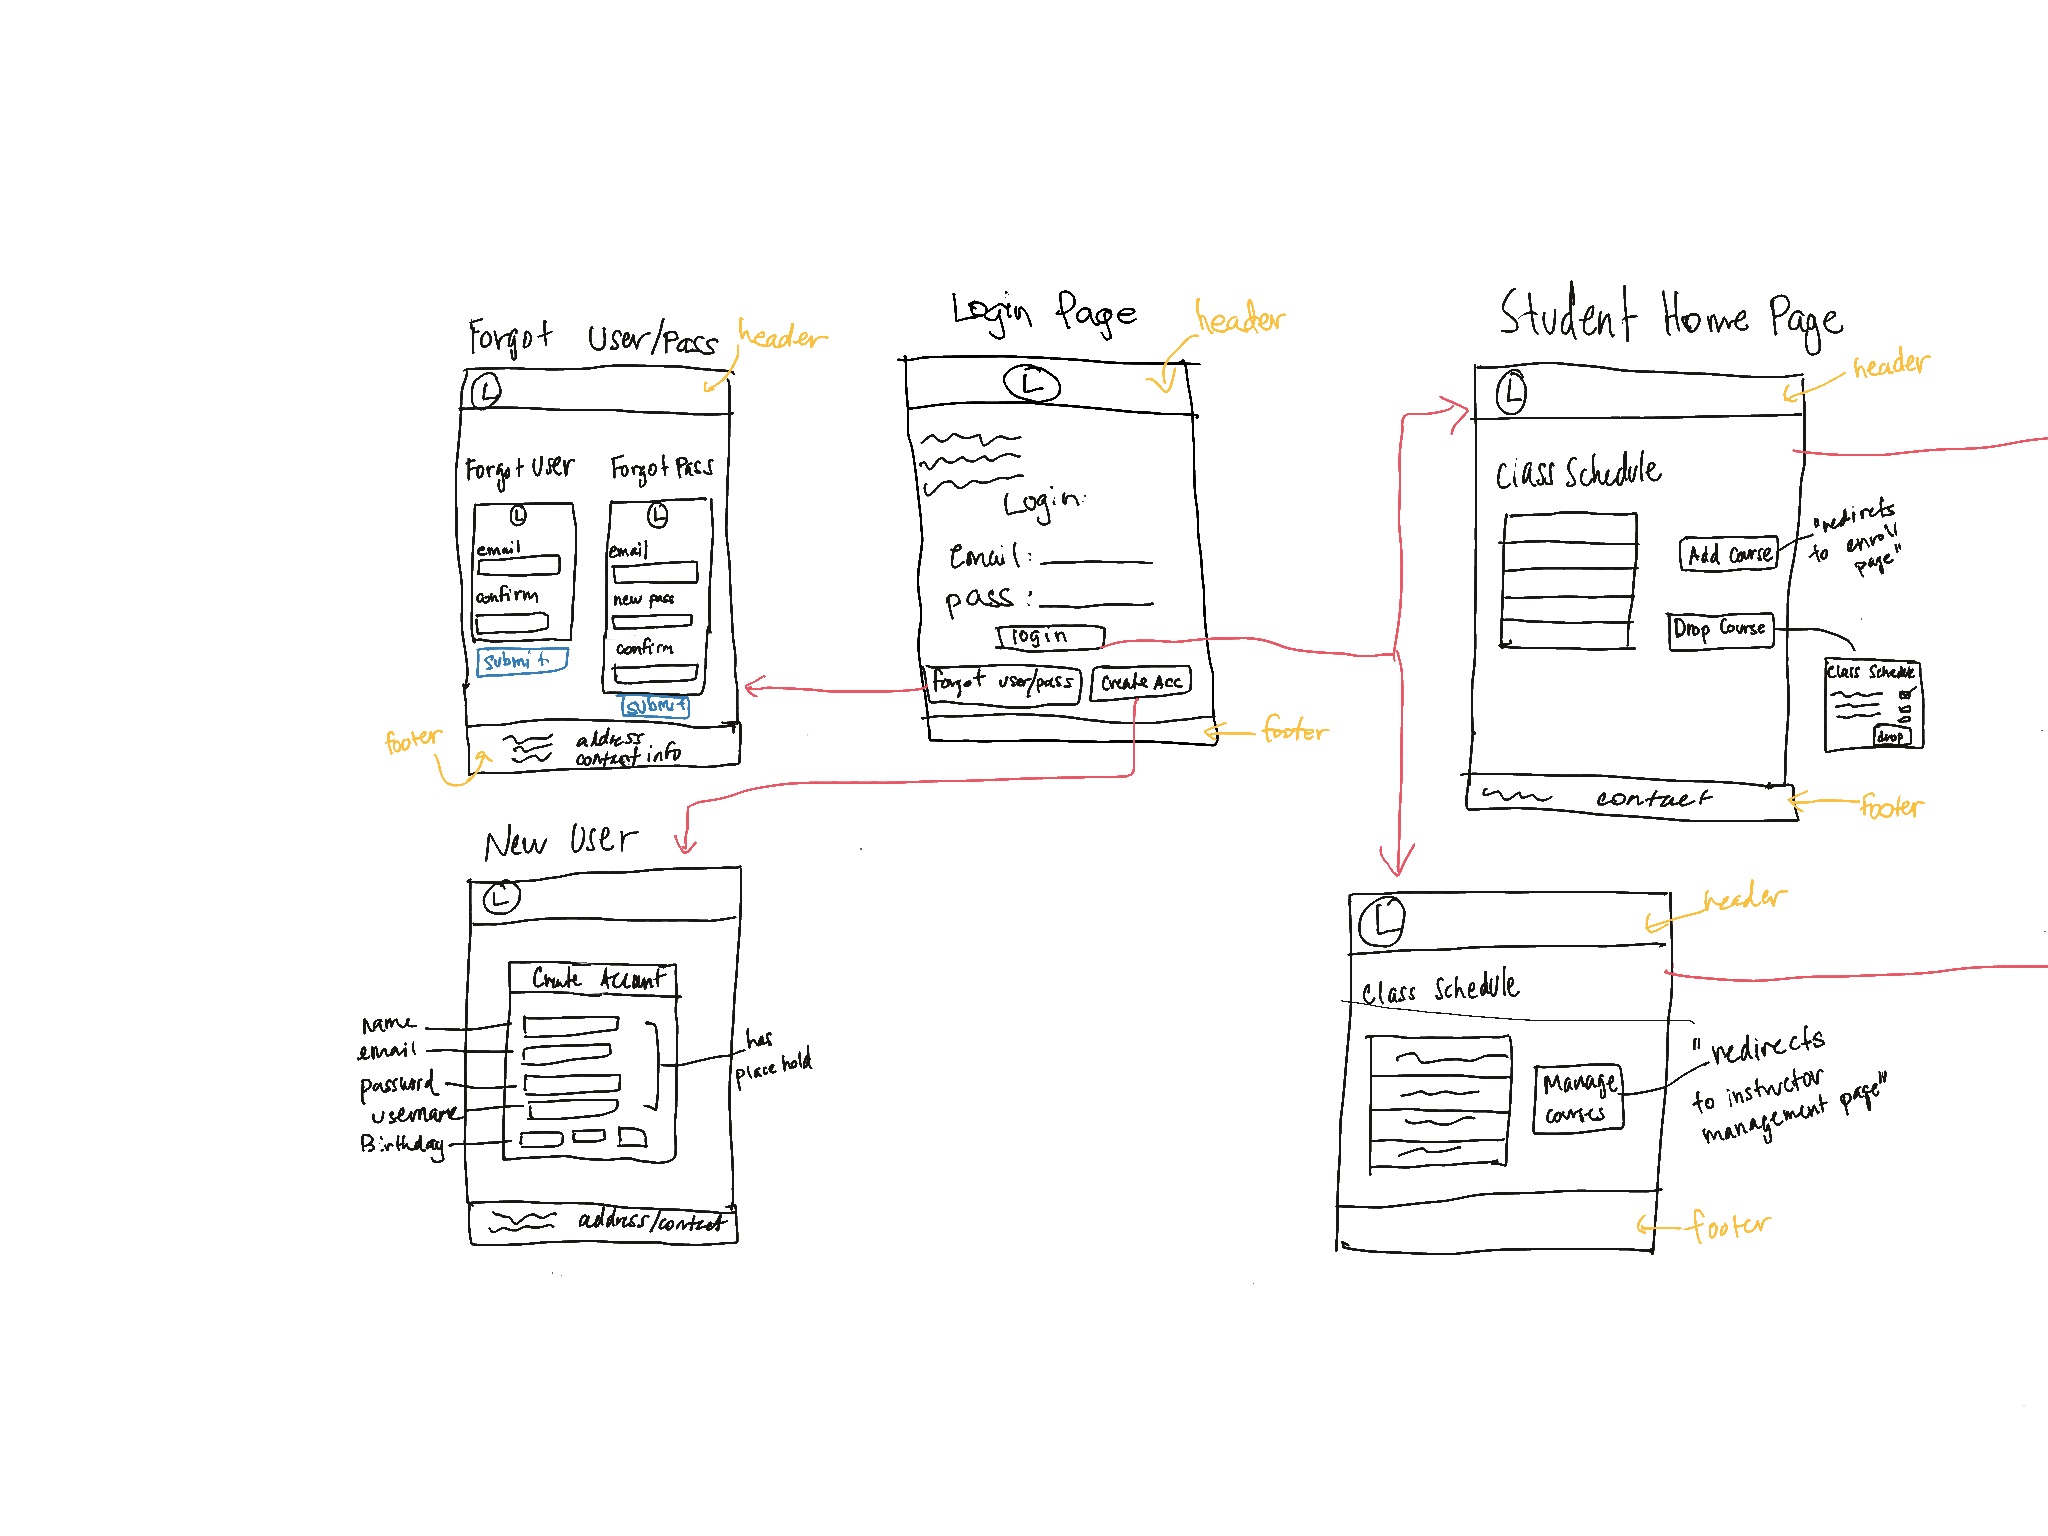 Forgot User/Pass
header
L
Forgot User
Forgot Pass
L
email
confirm
submit
L
email
new pass
confirm
submit
footer
address
contact info
Login Page
header
L
Login:
email:
pass:
login
forgot user/pass
Create Acc
footer
Student Home Page
header
L
Class Schedule
Add Course
"redirects
to enroll
page"
Drop Course
Class Schedule
drop
contact
footer
New User
L
Create Account
name
email
password
username
Birthday
has
place hold
address/contact
header
L
Class Schedule
Manage
courses
"redirects
to instructor
management page"
footer